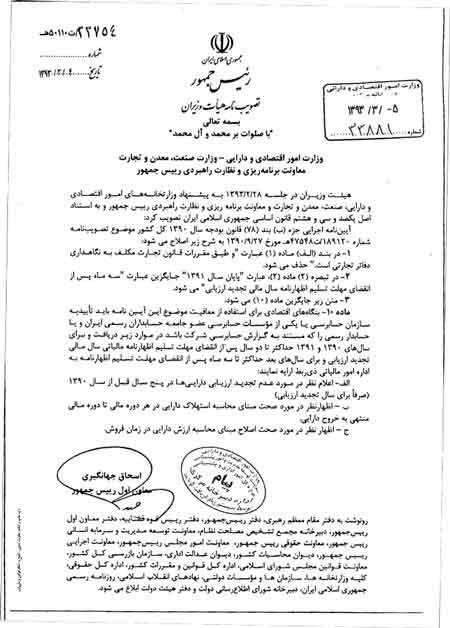 ۲۲۷۵۴/ت۵۰۱۱۰هـ
شماره
تاریخ ۱۳۹۳/۳/۴
جمهوری اسلامی ایران
رئیس جمهور
تصویب نامه هیأت وزیران
بسمه تعالی
"با صلوات بر محمد و آل محمد"
وزارت امور اقتصادی و دارایی
۱۳۹۳ /۳/ -۵
شماره ۳۳۸۸۱
وزارت امور اقتصادی و دارایی – وزارت صنعت، معدن و تجارت
معاونت برنامه‌ریزی و نظارت راهبردی رییس جمهور
هیئت وزیران در جلسه ۱۳۹۳/۲/۲۸ به پیشنهاد وزارتخانه‌های امور اقتصادی
و دارایی، صنعت، معدن و تجارت و معاونت برنامه ریزی و نظارت راهبردی رییس جمهور و به استناد
اصل یکصد و سی و هشتم قانون اساسی جمهوری اسلامی ایران تصویب کرد:
آیین‌نامه اجرایی جزء (ب) بند (۷۸) قانون بودجه سال ۱۳۹۰ کل کشور موضوع تصویب‌نامه
شماره ۱۸۹۱۲۰/ت۴۷۵۴۸هـ مورخ ۱۳۹۰/۹/۲۷ به شرح زیر اصلاح می شود:
۱- در بند (الف) ماده (۱) عبارت "و طبق مقررات قانون تجارت مکلف به نگاهداری
دفاتر تجارتی است." حذف می شود.
۲- در تبصره (۲) ماده (۲)، عبارت "پایان سال ۱۳۹۱" جایگزین عبارت "سه ماه پس از
انقضای مهلت تسلیم اظهارنامه سال مالی تجدید ارزیابی" می شود.
۳- متن زیر جایگزین ماده (۱۰) می شود:
ماده ۱۰- بنگاه‌های اقتصادی برای استفاده از معافیت موضوع این آیین نامه باید تأییدیه
سازمان حسابرسی یا یکی از مؤسسات حسابرسی عضو جامعه حسابداران رسمی ایران و یا
حسابدار رسمی را که مستند به گزارش حسابرسی شرکت باشد در موارد زیر دریافت و برای
سال‌های ۱۳۹۰ و ۱۳۹۱ حداکثر تا دو سال پس از انقضای مهلت تسلیم اظهارنامه مالیاتی سال مالی
تجدید ارزیابی و برای سال‌های بعد حداکثر تا سه ماه پس از انقضای مهلت تسلیم اظهارنامه به
اداره امور مالیاتی ذی‌ربط ارایه نمایند:
الف- اعلام نظر در مورد عدم تجدید ارزیابی دارایی‌ها در پنج سال قبل از سال ۱۳۹۰
(صرفاً برای سال تجدید ارزیابی)
ب – اظهارنظر در مورد صحت مبنای محاسبه استهلاک دارایی در هر دوره مالی تا دوره مالی
منتهی به خروج دارایی.
ج – اظهار نظر در مورد صحت اصلاح مبنای محاسبه ارزش دارایی در زمان فروش.
اسحاق جهانگیری
معاون اول رییس جمهور
پیام
رونوشت به دفتر مقام معظم رهبری، دفتر رییس‌جمهور، دفتر رییس قوه قضاییه، دفتر معاون اول
رییس جمهور، دبیرخانه مجمع تشخیص مصلحت نظام، معاونت توسعه مدیریت و سرمایه انسانی
رییس جمهور، معاونت حقوقی رییس جمهور، معاونت امور مجلس رییس جمهور، معاونت اجرایی
رییس جمهور، دیوان محاسبات کشور، دیوان عدالت اداری، سازمان بازرسی کل کشور،
معاونت قوانین مجلس شورای اسلامی، اداره کل قوانین و مقررات کشور، اداره کل حقوقی،
کلیه وزارتخانه ها، سازمان ها و مؤسسات دولتی، نهادهای انقلاب اسلامی، روزنامه رسمی
جمهوری اسلامی ایران، دبیرخانه شورای اطلاع‌رسانی دولت و دفتر هیئت دولت ابلاغ می شود.